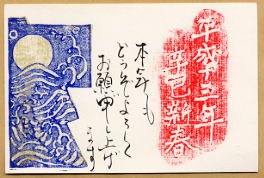 平成十三年
辛巳新春
本年も
どうぞよろしく
お願い申し上げ
ます